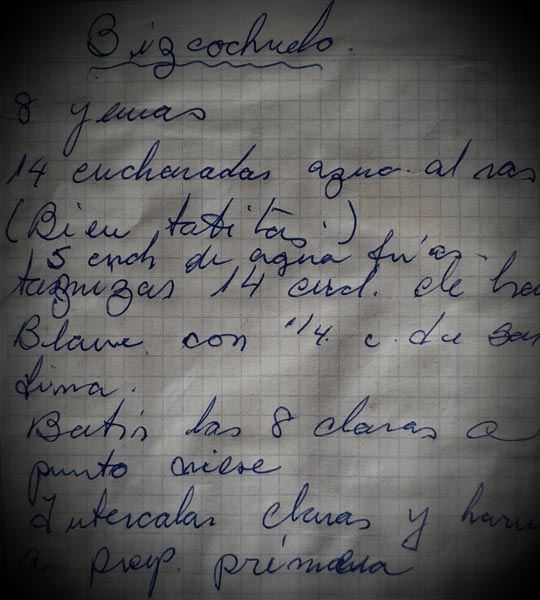 Bizcochuelo.
8 yemas
14 cucharadas al ras
(Bien batiditas.)
5 cuch de agua frias
14 cuch. de ha
Blanc con 1/4 c. de
fina.
Batir las 8 claras a
punto nieve
Intercalar claras y hari
a prep. primera